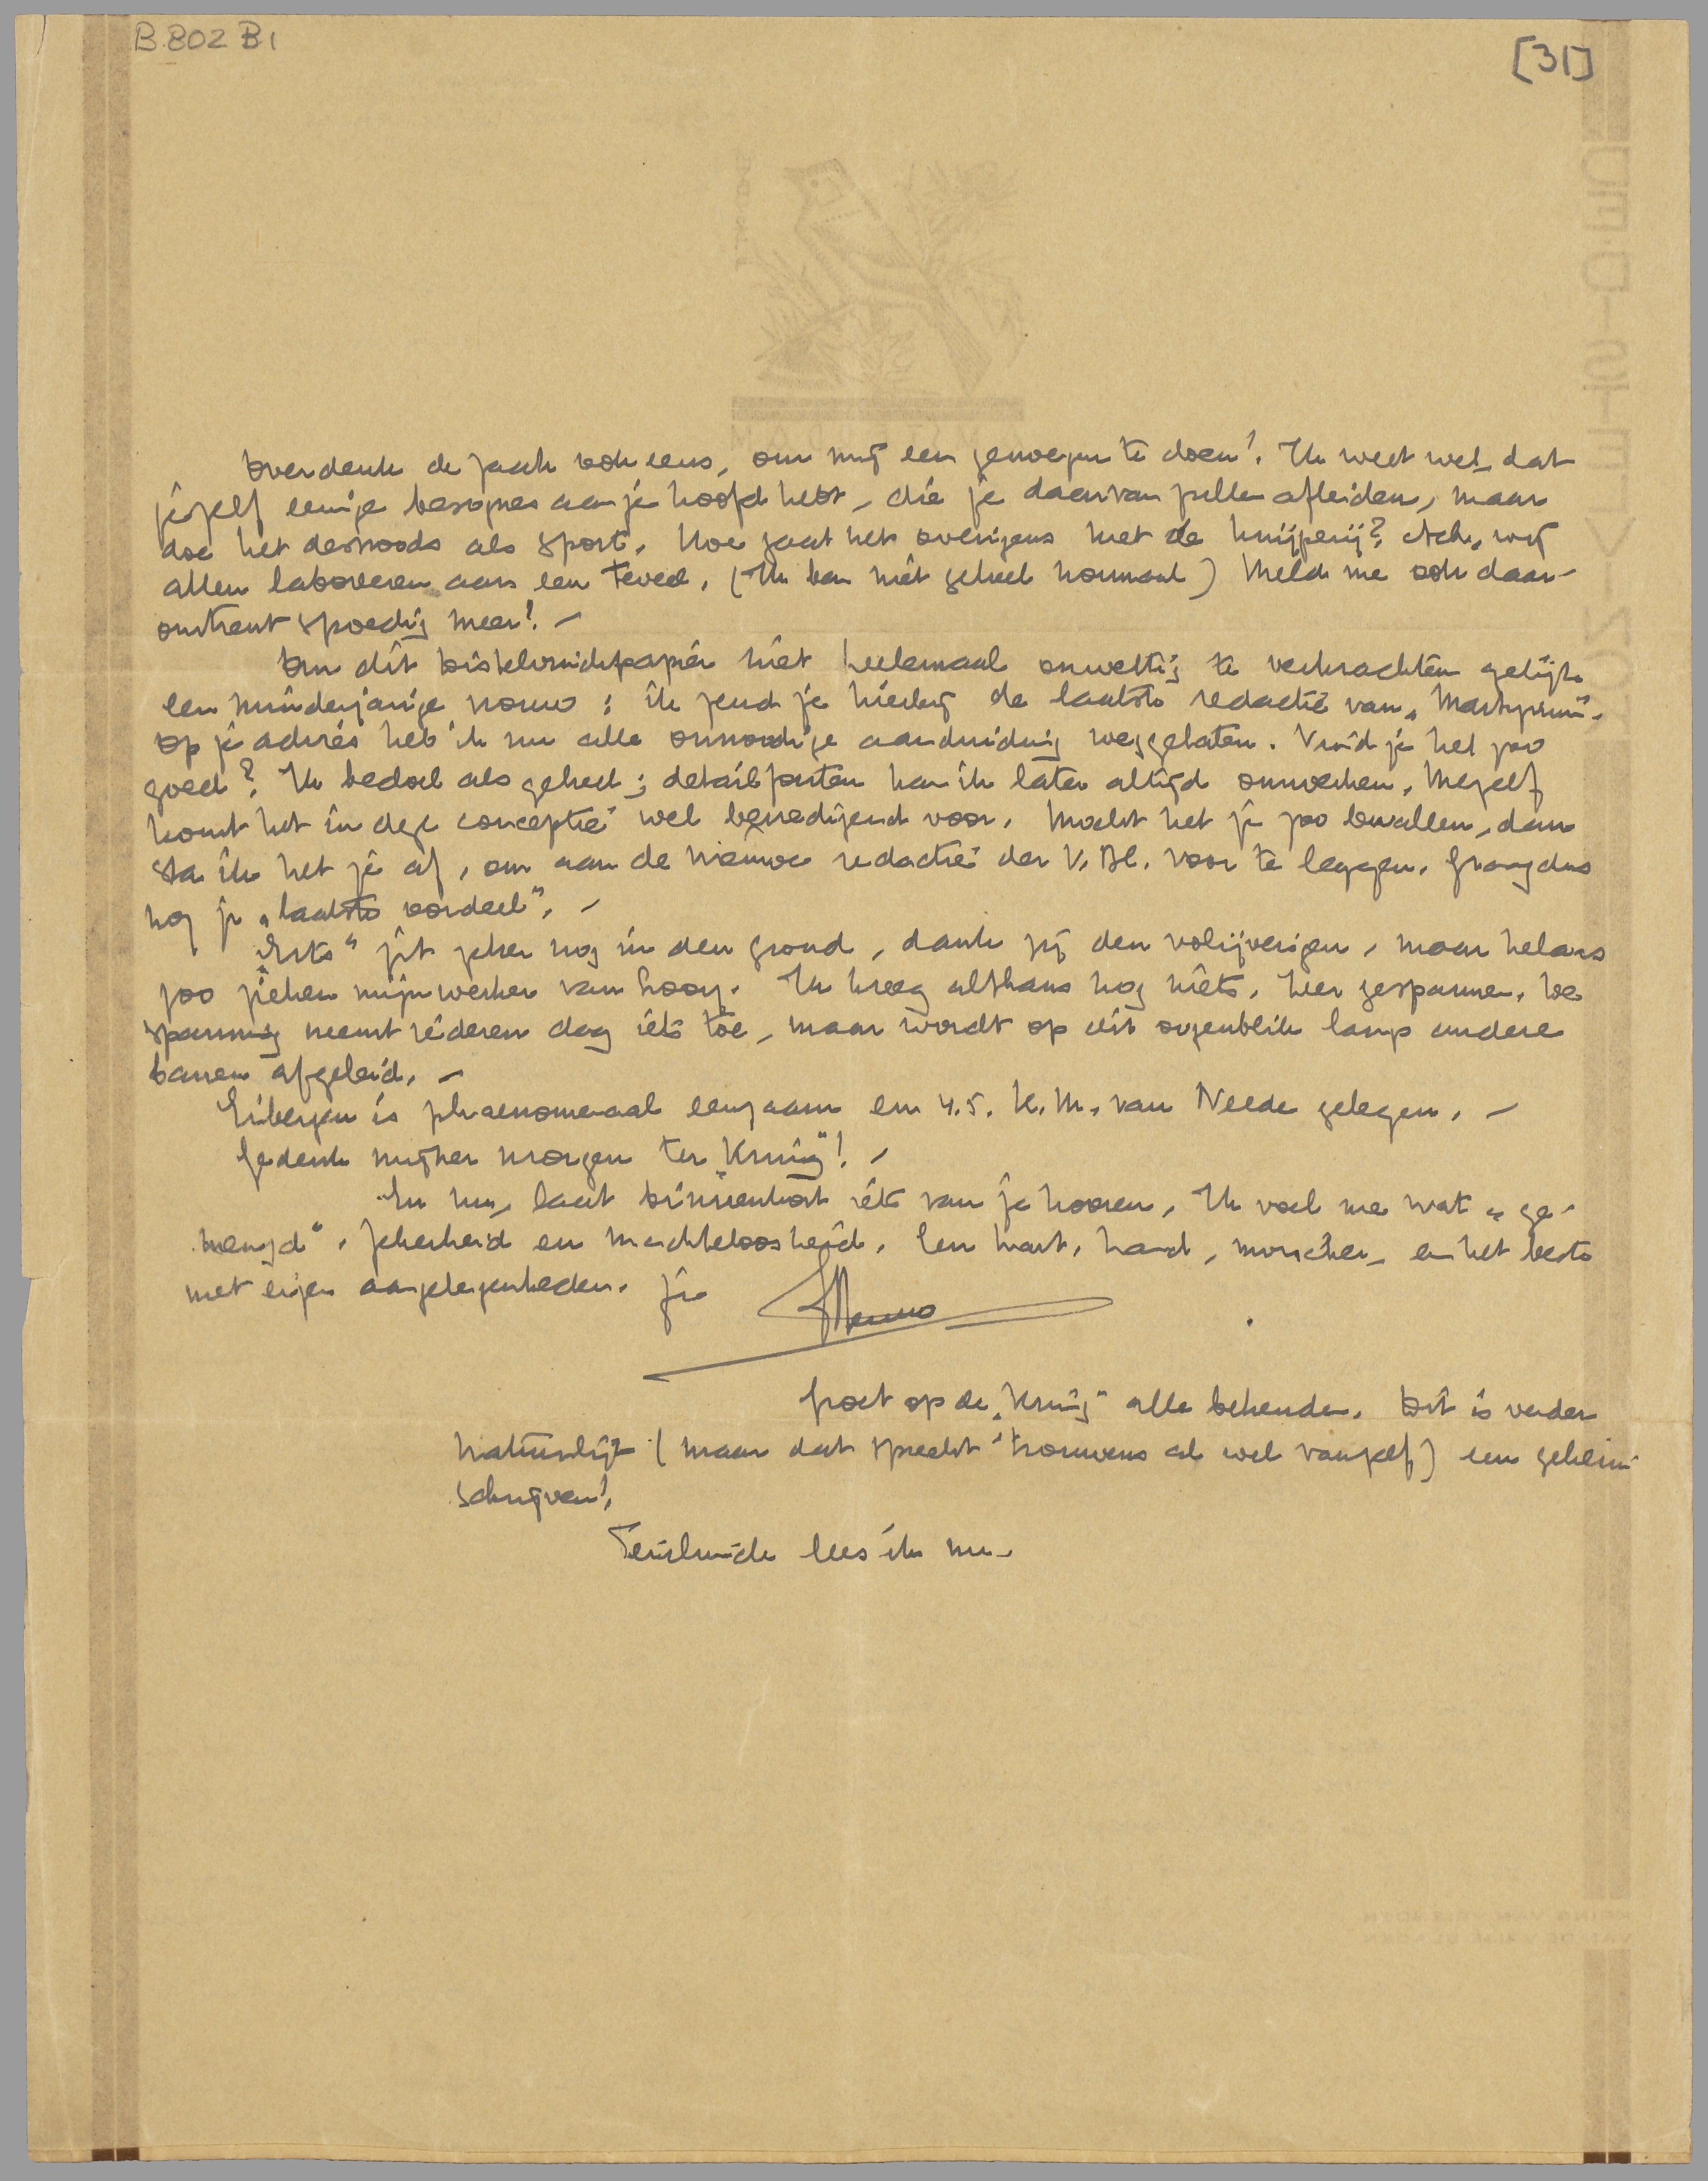 B.802 B1
[31]
Overdenk de zaak ook eens, om mij een genoegen te doen! Ik weet wel, dat
jezelf eenige besognes aan je hoofd hebt, die je daarvan zullen afleiden, maar
doe het desnoods als sport. Hoe gaat het overigens met de knijperij? Ach, wij
allen laboreeren aan een teveel. (Ik ben niet geheel normaal) Meld me ook daar-
omtrent spoedig meer! –
Om dit distelvinckpapier niet heelemaal onwettig te verkrachten gelijk
een minderjarige vrouw: ik zend je hierbij de laatste redactie van „Martyrium".
Op je advies heb ik nu alle onnoodige aanduiding weggelaten. Vind je het zoo
goed? Ik bedoel als geheel; detailfouten kan ik later altijd omwerken. Mezelf
komt het in deze conceptie wel bevredigend voor. Mocht het je zoo bevallen, dan
sta ik het je af, om aan de nieuwe redactie der V. Bl. voor te leggen. Graag dus
nog je „laatste oordeel". –
„Erts" zit zeker nog in den grond, dank zij den volijverigen, maar helaas
zoo zieken mijnwerker van Gooy. Ik kreeg althans nog niets. Zeer gespannen. De
spanning neemt iederen dag iets toe, maar wordt op dit oogenblik langs andere
banen afgeleid. –
Eibergen is phaenomenaal eenzaam en 4.5. K.M. van Neede gelegen. –
Gedenk mijner morgen ter „Kring"! –
En nu, laat binnenkort iets van je hooren. Ik voel me wat „ge-
mengd". Zekerheid en machteloosheid. Een hart, hand, 
en het beste
met eigen aangelegenheden. Je
Menno
Groet op de „Kring" alle bekenden. Dit is verder
natuurlijk (maar dat spreekt trouwens al wel vanzelf) een geheim
schrijven!
Teirlinck lees ik nu.